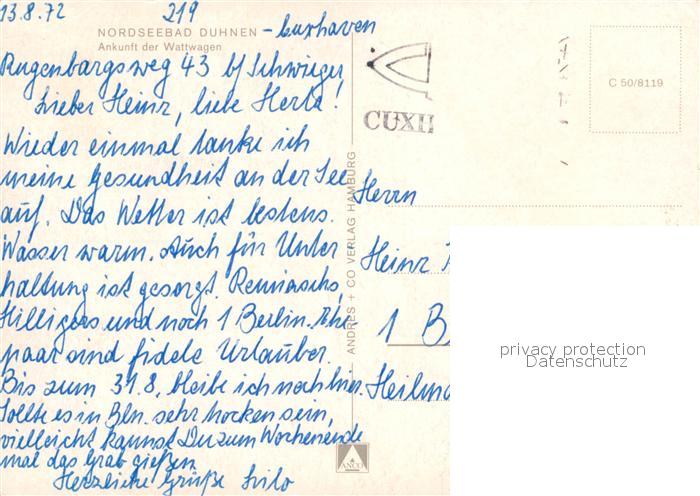 13.8.72 219
NORDSEEBAD DUHNEN - Cuxhaven
Ankunft der Wattwagen
Rugenbargsweg 43 b/ Schwieger
Lieber Heinz, liebe Herta!
Wieder einmal tanke ich
meine Gesundheit an der See
auf. Das Wetter ist bestens.
Wasser warm. Auch für Unter
haltung ist gesorgt.
Hilligers und noch 1 Berlin. Ehe
paar sind fidele Urlauber.
Bis zum 31.8. bleibe ich noch hier.
Sollte es in Bln. sehr trocken sein,
vielleicht kannst Du zum Wochenende
mal das Grab gießen.
Herzliche Grüße
ANDRES + CO VERLAG HAMBURG
ANCO
CUXH
C 50/8119
Herrn
Heinz
1 B
privacy protection
Datenschutz